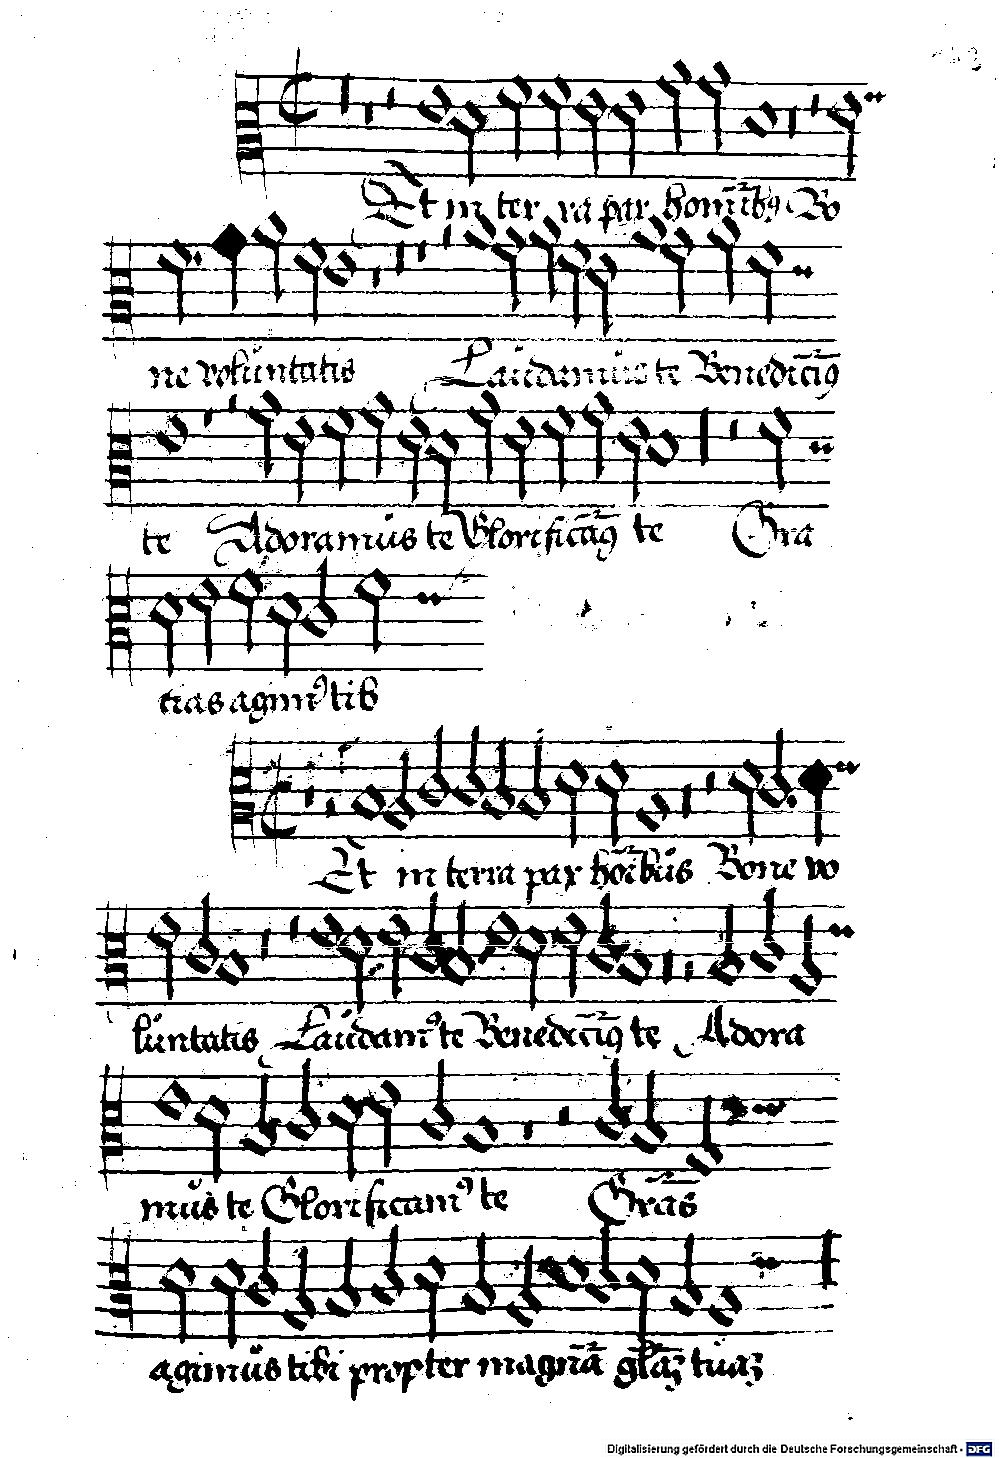 Et in ter ra pax homībꝯ Bo
ne volüntatis Laüdamüs te Benedicīꝯ
te Adoramüs te Glorificāꝯ te Gra
tias agimꝯ tib
Et in terra pax hoībüs Bone vo
lüntatis Laüdamꝯ te Benedicīꝯ te Adora
müs te Glorificamꝯ te Grās
agimüs tibi propter magnā glāꝫ tuaꝫ
Digitalisierung gefördert durch die Deutsche Forschungsgemeinschaft - DFG